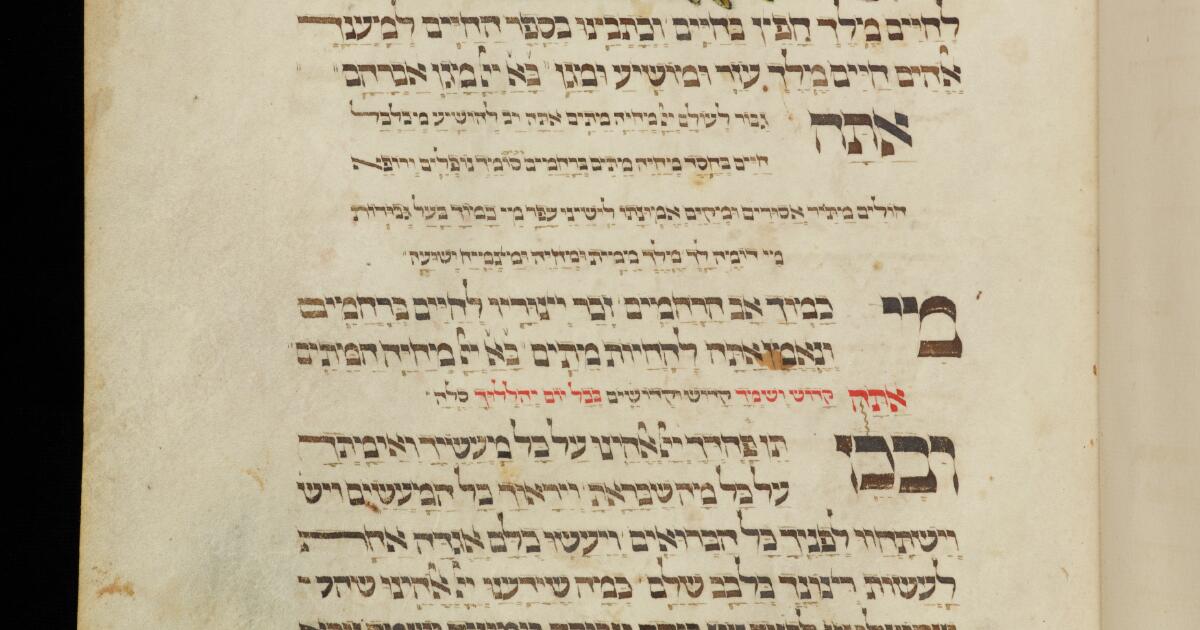 לחיים מלך חפץ בחיים וכתבינו בספר החיים למענך
אלהים חיים מלך עוזר ומושיע ומגן בא יי מגן אברהם
אתה גבור לעולם יי מחיה מתים אתה רב להושיע מכלכל
חיים בחסד מחיה מתים ברחמים סומך נופלים ורופא
חולים מתיר אסורים ומקיים אמונתו לישיני עפר מי כמוך בעל גבורות
מי דומה לך מלך ממית ומחיה ומצמיח ישועה
מי כמוך אב הרחמים זוכר יצוריו לחיים ברחמים
ונאמן אתה להחיות מתים בא יי מחיה המתים
אתה קדוש ושמך קדוש וקדושים בכל יום יהללוך סלה
ובכן תן פחדך יי אלהינו על כל מעשיך ואימתך
על כל מה שבראת וייראוך כל המעשים ויש
וישתחוו לפניך כל הברואים ויעשו כולם אגודה אחת
לעשות רצונך בלבב שלם כמה שידענו יי אלהינו שהע